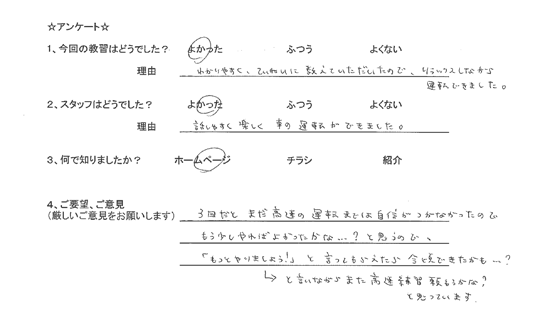 ☆アンケート☆
1、今回の教習はどうでした？ よかった ふつう よくない
理由 わかりやすく、ていねいに教えていただいたので、リラックスしながら
運転できました。
2、スタッフはどうでした？ よかった ふつう よくない
理由 話しやすく楽しく車の運転ができました。
3、何で知りましたか？ ホームページ チラシ 紹介
4、ご要望、ご意見
(厳しいご意見をお願いします) 3日だとまだ高速の運転までは自信がつかなかったので
もう少しやればよかったかな…？と思うので、
「もっとやりましょう！」と言ってもらえたら今頃できたかも…？
↳と言いながらまた高速練習頼もうかな？
と思っています。